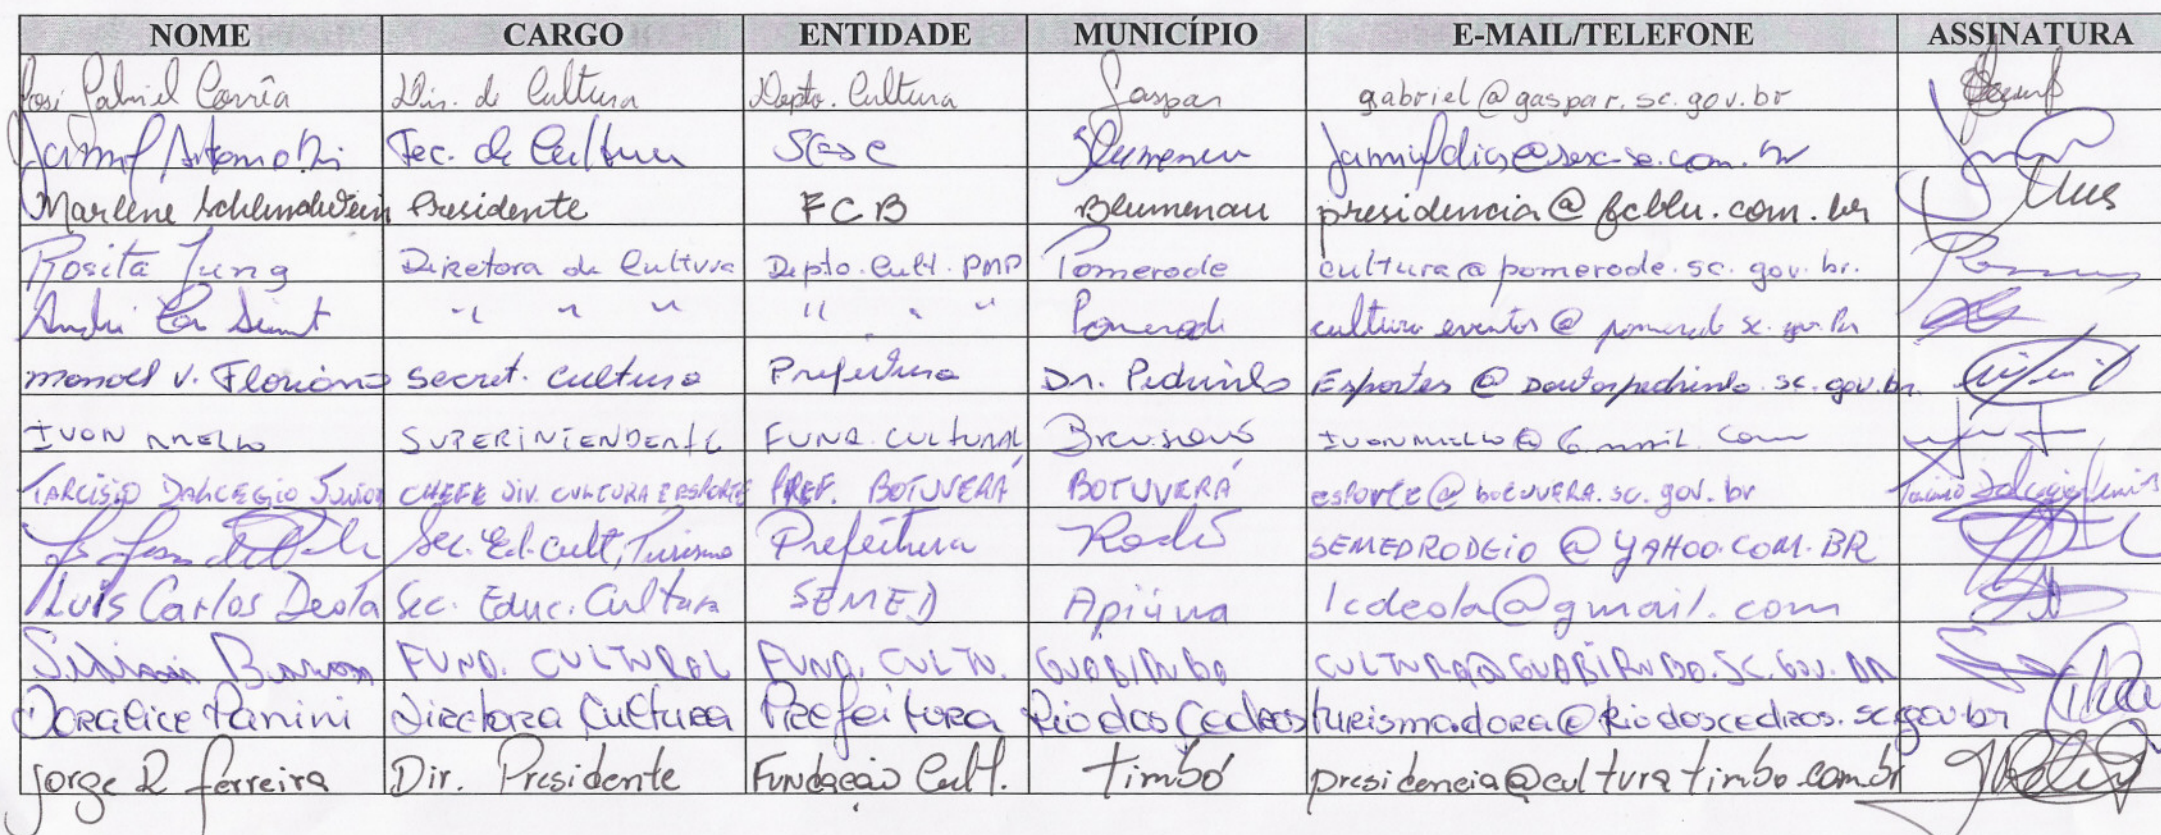 NOME CARGO ENTIDADE MUNICÍPIO E-MAIL/TELEFONE ASSINATURA
José Gabriel Corrêa Dir. de Cultura Depto. Cultura Gaspar gabriel@gaspar.sc.gov.br
Tec. de Cultura Sesc Blumenau
Marlene Schlindwein Presidente FCB Blumenau presidencia@fcblu.com.br
Rosita Jung Diretora de Cultura Depto. Cult. PMP Pomerode cultura@pomerode.sc.gov.br.
" " " " " " Pomerode
Manoel V. Floriano Secret. Cultura Prefeitura Dr. Pedrinho Esportes@doutorpedrinho.sc.gov.br
IVON SUPERINTENDENTE FUND. CULTURAL
TARCÍSIO DALCEGIO JUNIOR CHEFE DIV. CULTURA E ESPORTE PREF. BOTUVERÁ BOTUVERÁ esporte@botuvera.sc.gov.br
Sec. Ed. Cult, Turismo Prefeitura SEMEDRODEIO@YAHOO.COM.BR
Luis Carlos Deola Sec. Educ. Cultura SEMED Apiúna lcdeola@gmail.com
FUND. CULTURAL FUND. CULTU. GUABIRUBA CULTURA@GUABIRUBA.SC.GOV.BR
Doralice Panini Diretora Cultura Prefeitura Rio dos Cedros turismodora@riodoscedros.sc.gov.br
Jorge R Ferreira Dir. Presidente Fundação Cult. Timbó presidencia@culturatimbo.com.br